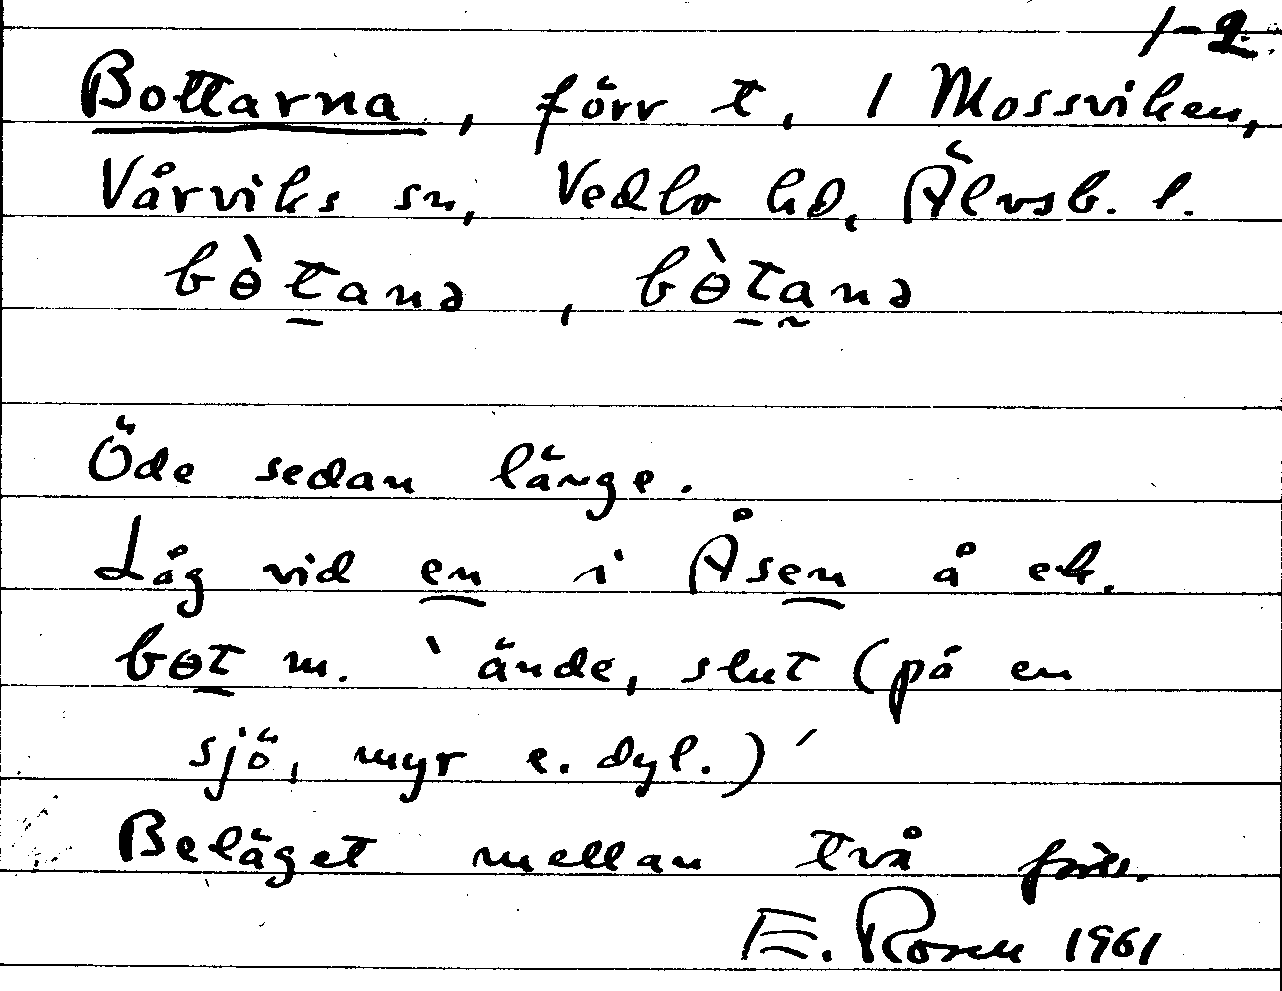 1-2.
Bottarna, förr t. / Mossviken,
Vårviks sn, Vedbo hd, Älvsb. l.
bɵ̀tanə, bɵ̀tanə
Öde sedan länge.
Låg vid en i Åsen å ek.
bɵt m. ` ände, slut (på en
sjö, myr e. dyl.) ´
Beläget mellan två
E. Rosen 1961